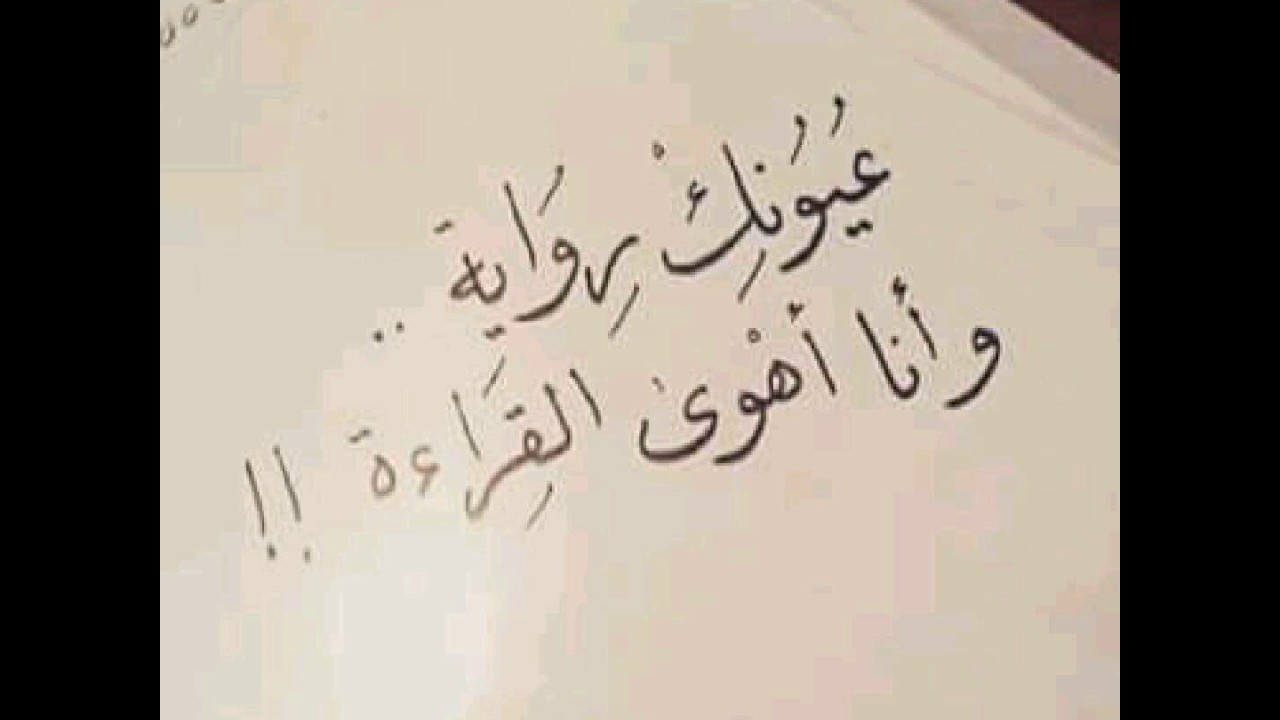 عُيُونِكْ رِوَاية ..
و أنا أهْوى القِرَاءة !!